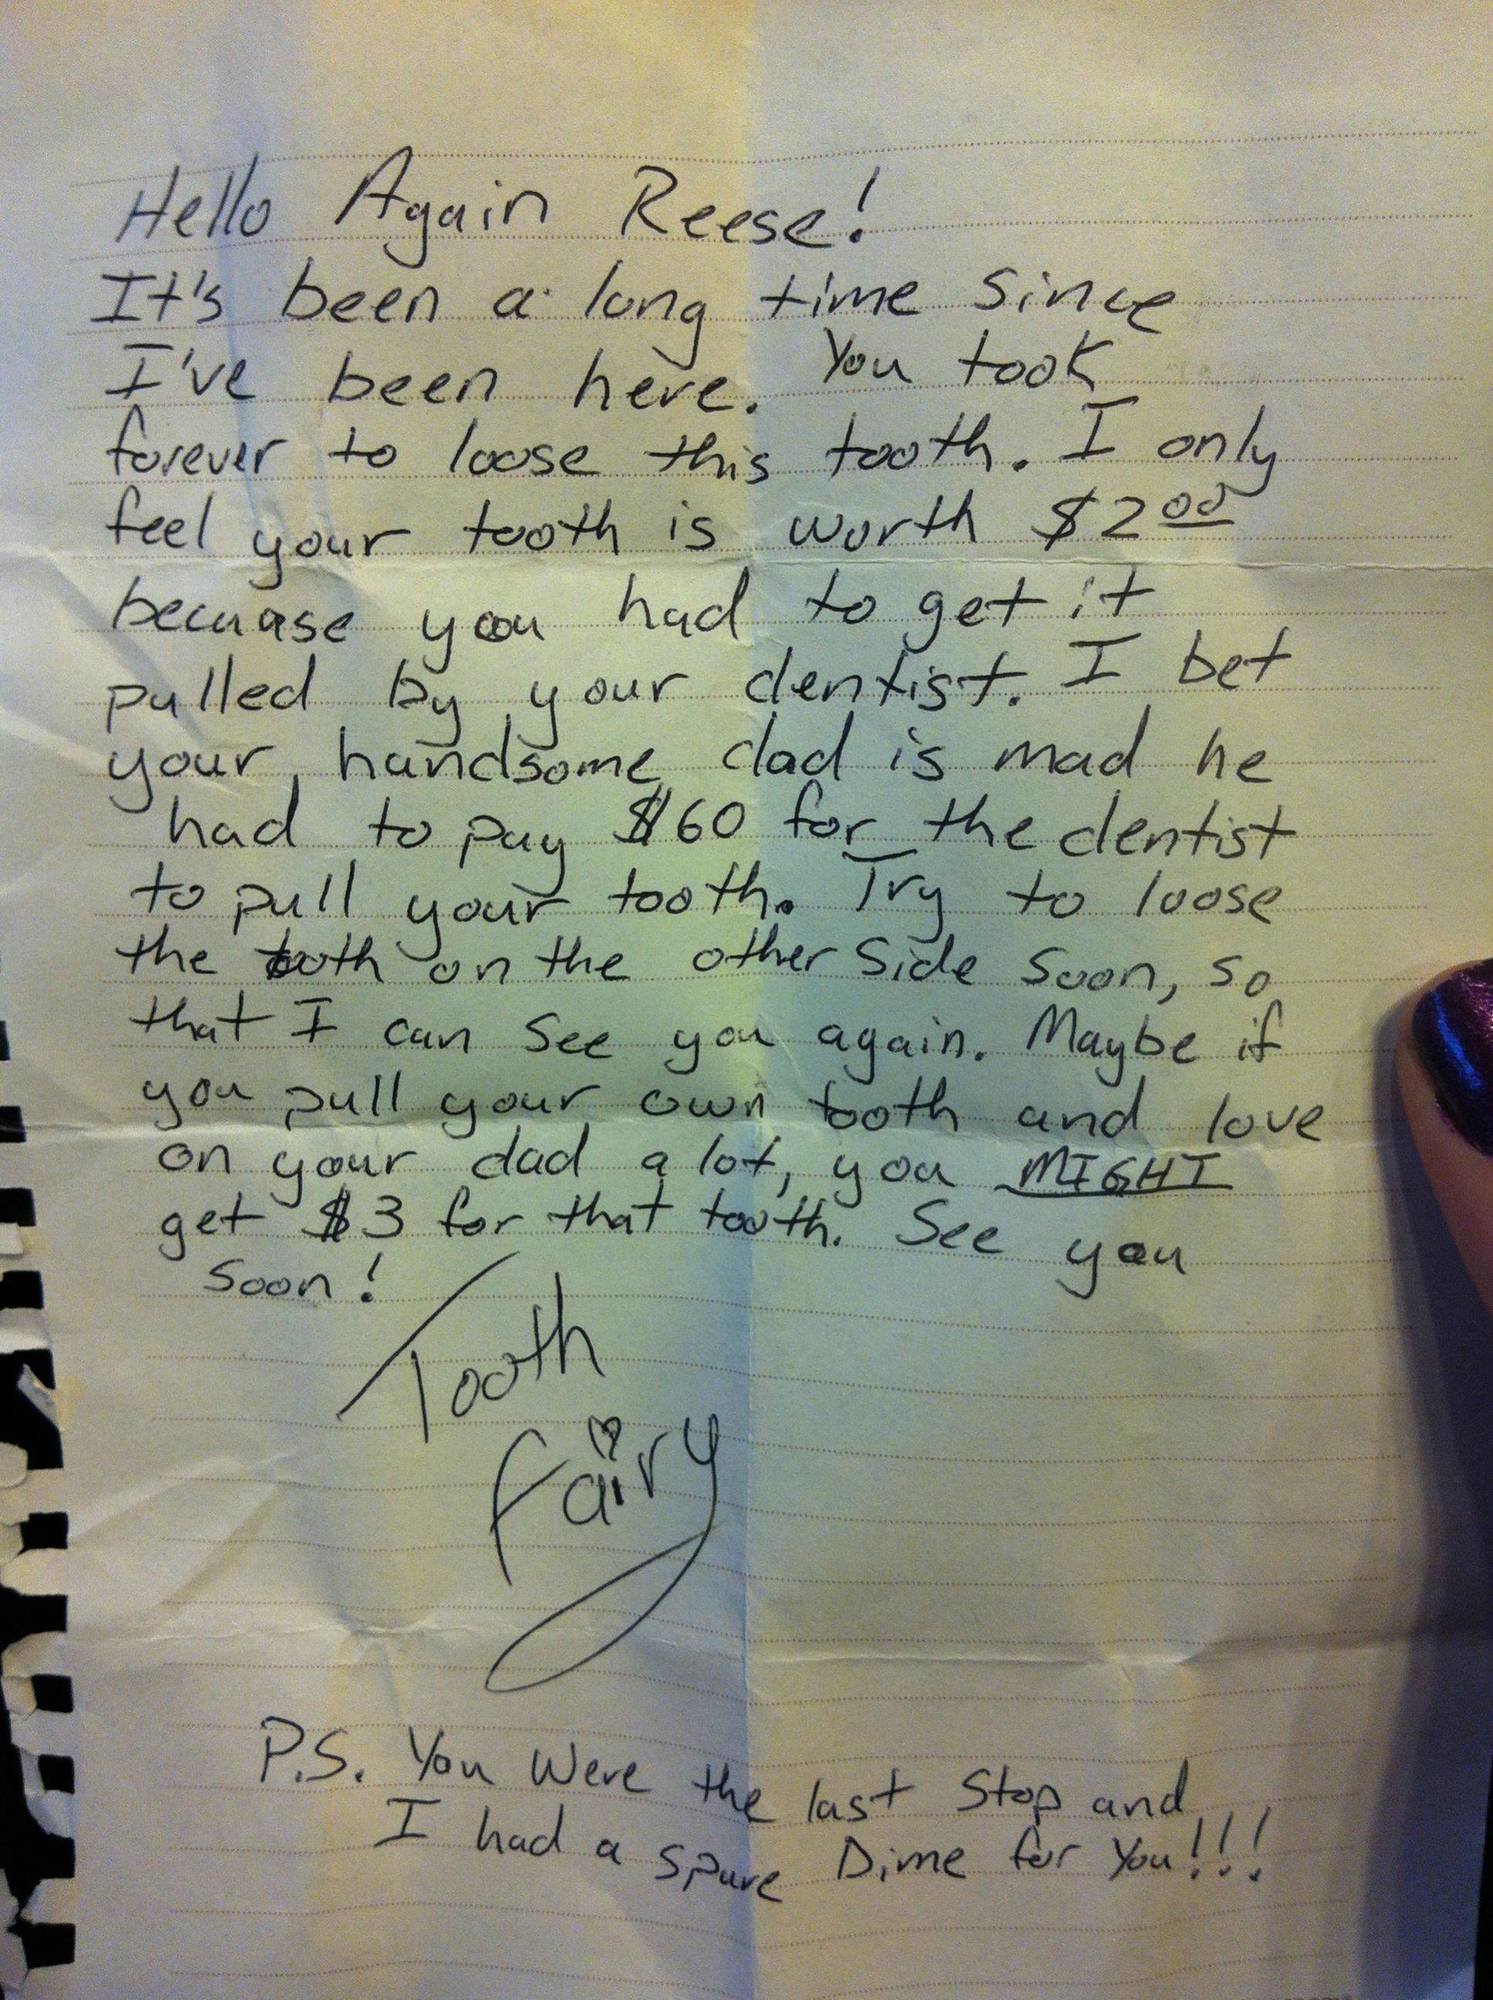 Hello Again Reese!
It's been a long time since
I've been here. You took
forever to loose this tooth. I only
feel your tooth is worth $2.00
because you had to get it
pulled by your dentist. I bet
your handsome dad is mad he
had to pay $60 for the dentist
to pull your tooth. Try to loose
the tooth on the other side soon, so
that I can see you again. Maybe if
you pull your own tooth and love
on your dad a lot, you MIGHT
get $3 for that tooth. See you
soon!
Tooth
Fairy
P.S. You Were the last Stop and
I had a spare Dime for You!!!